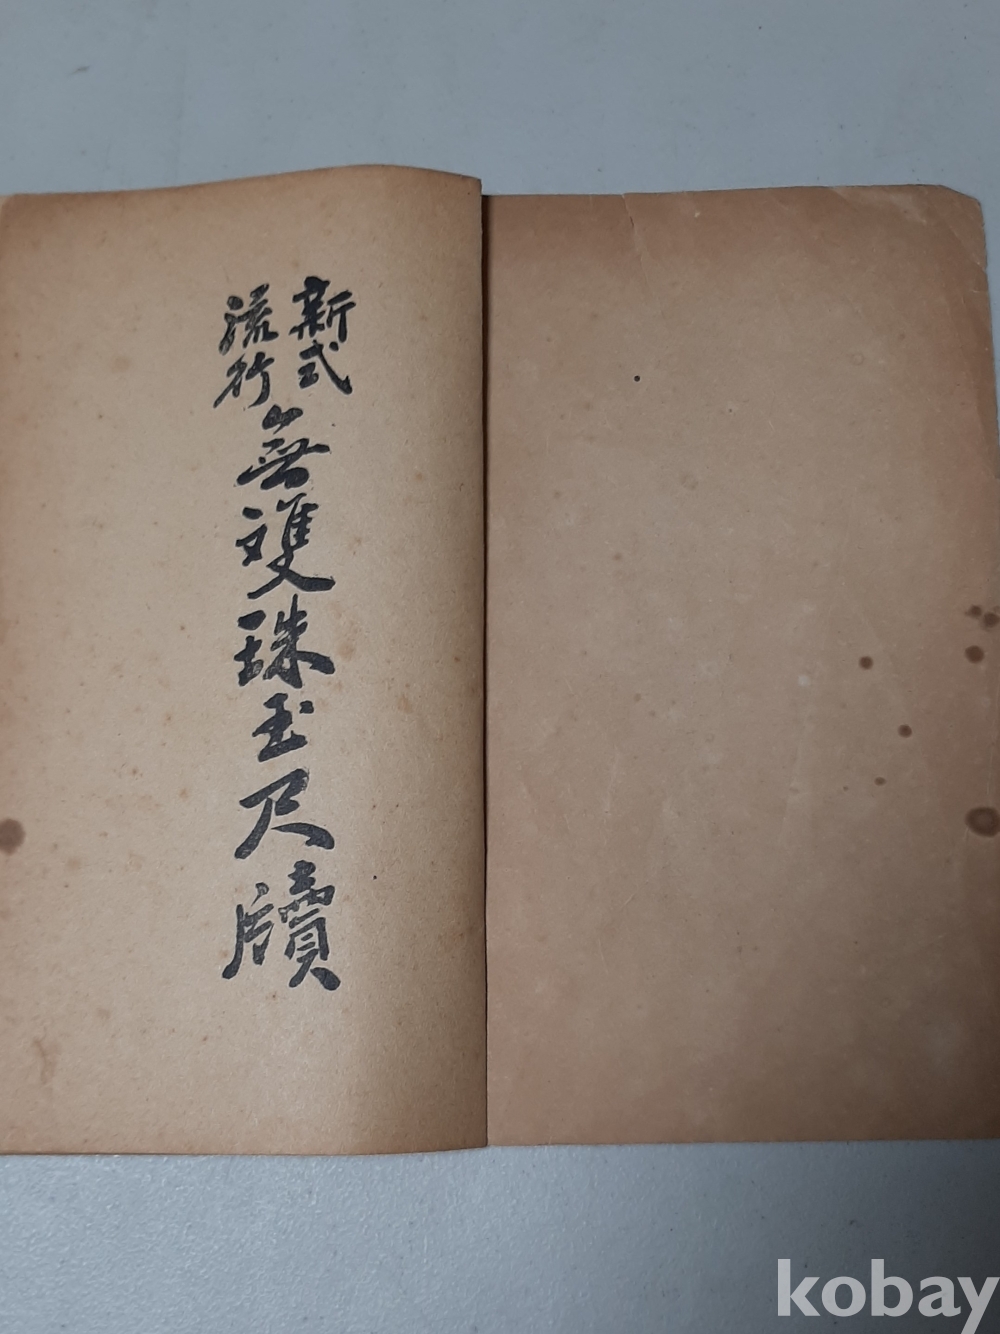 新式
流行
無雙珠玉尺牘
kobay